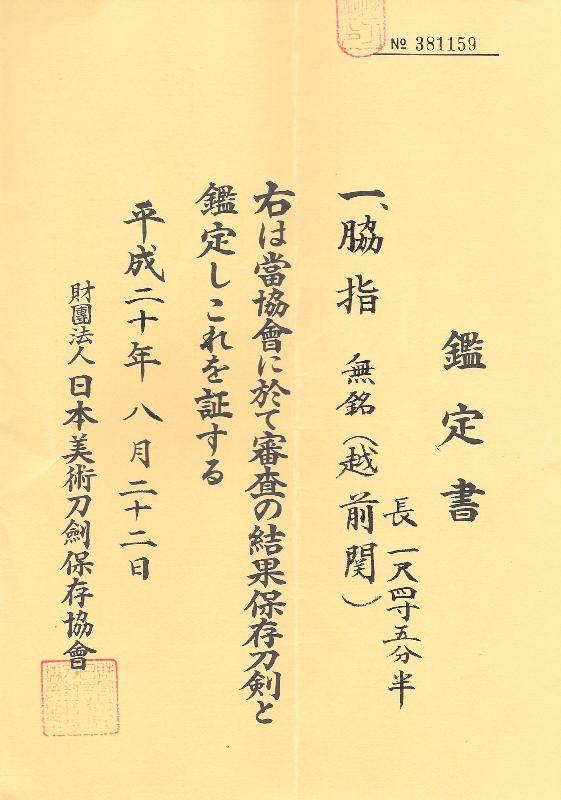 № 381159
鑑定書
一、脇指 無銘(越前関)
長 一尺四寸五分半
右は當協會に於て審査の結果保存刀剣と
鑑定しこれを証する
平成二十年八月二十二日
財團法人 日本美術刀劍保存協會